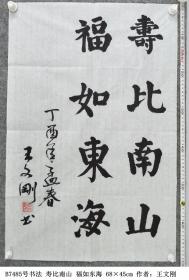 壽比南山
福如東海
丁酉年孟春
王文剛書
B7485号书法 寿比南山 福如东海 68×45cm 作者：王文刚